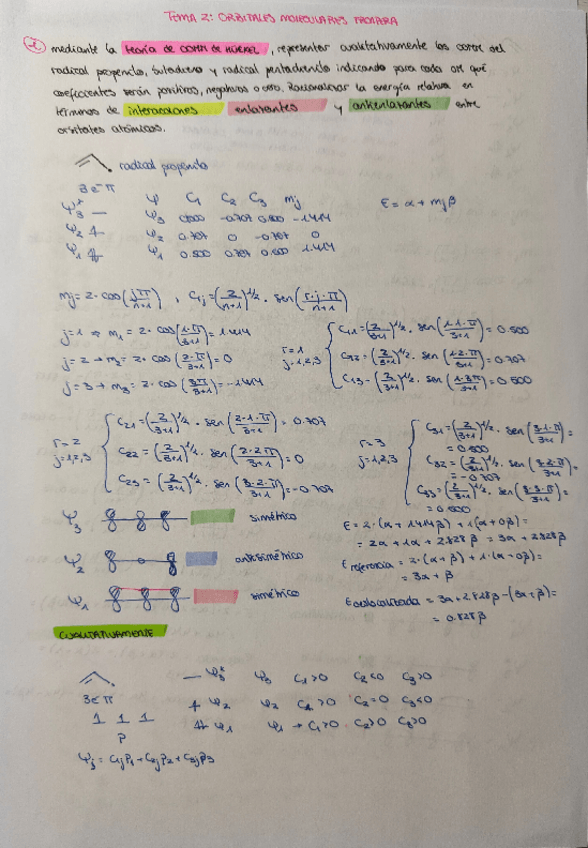 TEMA 2: ORBITALES MOLECULARES FRONTERA
mediante la teoría de COM de HÜCKEL, representar cualitativamente los COM del
radical propenilo, butadieno y radical pentadienilo indicando para cada OM qué
coeficientes serán positivos, negativos o cero. Racionalizar la energía relativa en
términos de interacciones enlazantes y antienlazantes entre
orbitales atómicos.
radical propenilo
3 e⁻ π
ψ C₁ C₂ C₃ mj
E = α + mjβ
ψ₃* — ψ₃ 0.500 -0.707 0.500 -1.414
ψ₂ ψ₂ 0.707 0 -0.707 0
ψ₁ ψ₁ 0.500 0.707 0.500 1.414
mj = 2·cos(jπ/n+1), Crj = (2/n+1)^1/2 · sen(r·j·π/n+1)
j=1 → m₁ = 2·cos(1·π/3+1) = 1.414
j=2 → m₂ = 2·cos(2·π/3+1) = 0
j=3 → m₃ = 2·cos(3π/3+1) = -1.414
r=1
j=1,2,3
C11 = (2/3+1)^1/2 · sen(1·1·π/3+1) = 0.500
= (2/3+1)^1/2 · sen(1·2·π/3+1) = 0.707
C13 = (2/3+1)^1/2 · sen(1·3π/3+1) = 0.500
r=2
j=1,2,3
C21 = (2/3+1)^1/2 · sen(2·1·π/3+1) = 0.707
C22 = (2/3+1)^1/2 · sen(2·2π/3+1) = 0
C23 = (2/3+1)^1/2 · sen(3·2·π/3+1) = -0.707
r=3
j=1,2,3
C31 = (2/3+1)^1/2 · sen(3·1·π/3+1) =
= 0.500
C32 = (2/3+1)^1/2 · sen(3·2·π/3+1) =
= -0.707
C33 = (2/3+1)^1/2 · sen(3·3·π/3+1) =
= 0.500
ψ₃ simétrico
ψ₂ antisimétrico
ψ₁ simétrico
E = 2·(α + 1.414β) + 1(α + 0β) =
= 2α + 1α + 2.828β = 3α + 2.828β
E referencia = 2·(α + β) + 1·(α + 0β) =
= 3α + β
E deslocalizada = 3α + 2.828β - (3α + β) =
= 0.828β
CUALITATIVAMENTE
3 e⁻ π
1 1 1
p
— ψ₃* ψ₃ C₁>0 C₂<0 C₃>0
ψ₂ ψ₂ C₁>0 C₂=0 C₃<0
ψ₁ ψ₁ → C₁>0 C₂>0 C₃>0
ψj = C1jP1 + C2jP2 + C3jP3